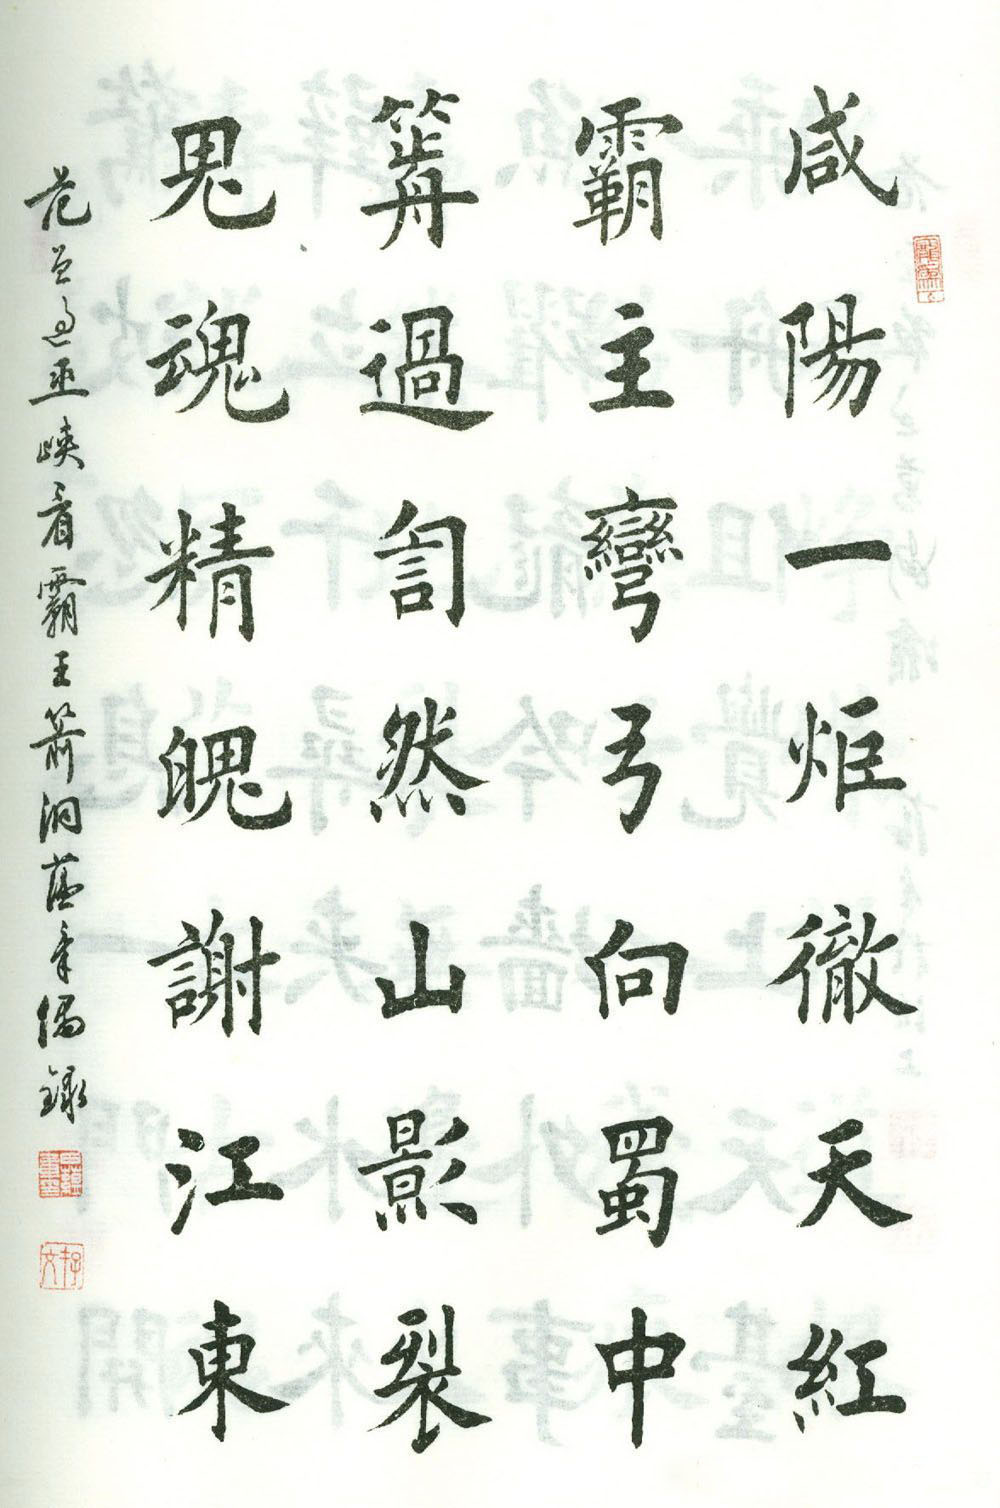 咸陽一炬徹天紅
霸主彎弓向蜀中
篝過訇然山影裂
鬼魂精魄謝江東
范曾過巫峽看霸王箭洞
錄